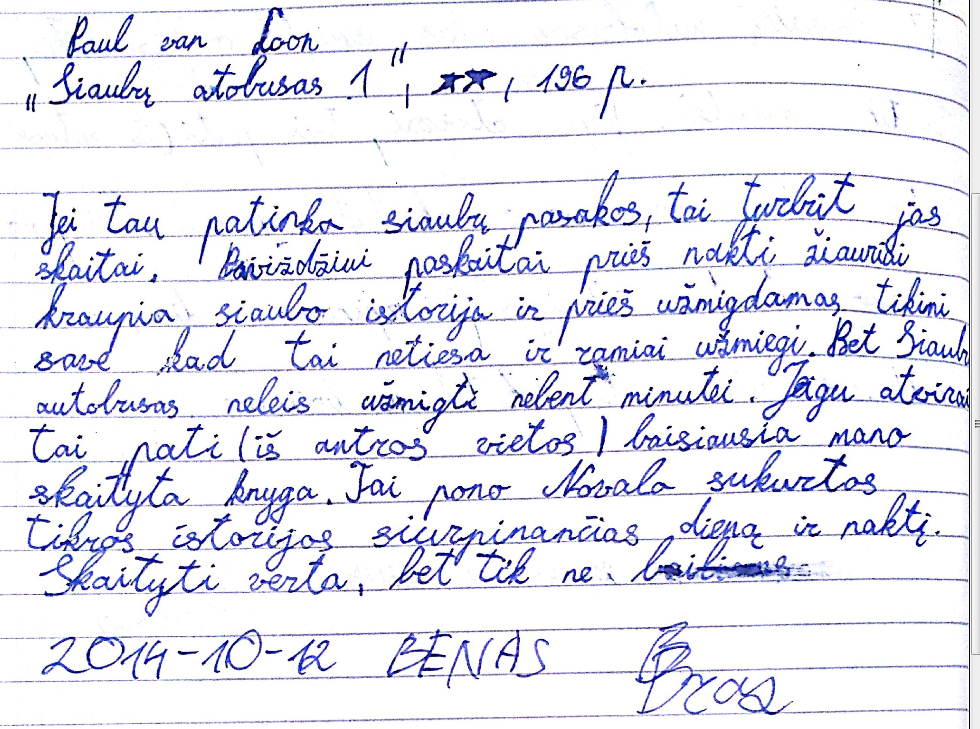 Paul van Loon
„Siaubų atobusas 1", ★★, 196 p.
Jei tau patinka siaubų pasakos, tai turbūt jas
skaitai. Paviždžiui paskaitai prieš naktį žiauriai
kraupia siaubo istorija ir prieš užmigdamas tikini
save kad tai netiesa ir ramiai užmiegi. Bet Siaubo
autobusas neleis užmigti nebent minutei. Jeigu atvirai
tai pati (iš antros vietos) baisiausia mano
skaityta knyga. Tai pono Novalo sukurtos
tikros istorijos siurpinančias dieną ir naktį.
Skaityti verta, bet tik ne
2014-10-12 BENAS